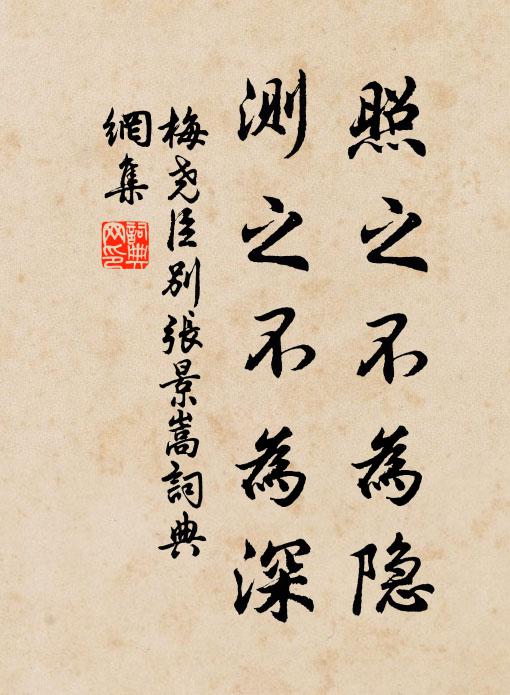 照之不為隐
測之不為深
梅尧臣别張景嵩詞典
網集
詞典
网印